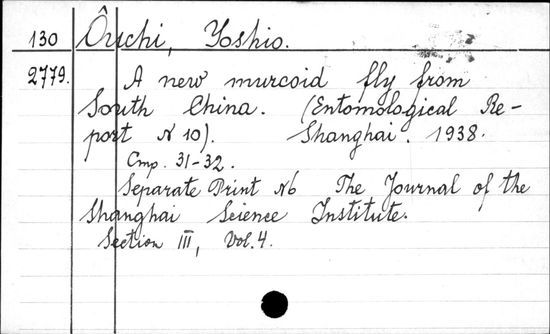 130 Ôuchi, Yoshio.
2779. A new murcoid fly from
South China. (Entomological Re-
port № 10). Shanghai. 1938.
Стр. 31-32.
Separate Print №6 The Journal of the
Shanghai Science Institute.
Section III, Vol. 4.